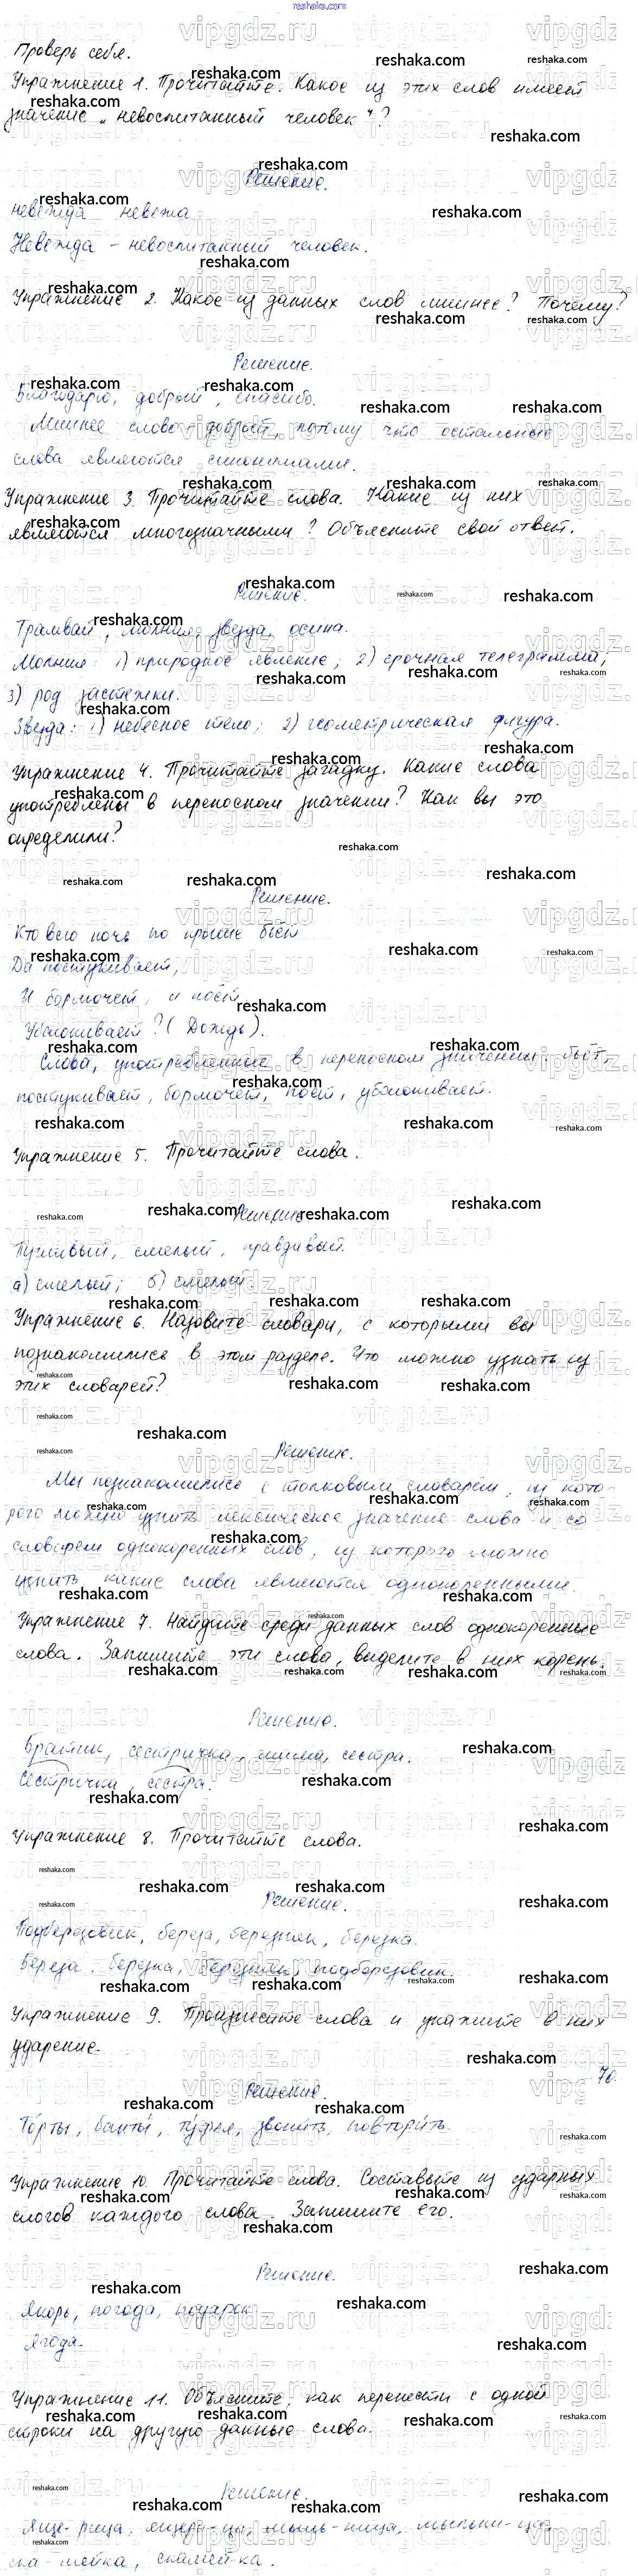 reshaka.com
Проверь себя.
Упражнение 1. Прочитайте. Какое из этих слов имеет
значение „невоспитанный человек"?
Решение.
невежда невежа
Невежда - невоспитанный человек.
Упражнение 2. Какое из данных слов лишнее? Почему?
Решение.
Благодарю, добрый, спасибо.
Лишнее слово - добрый, потому что остальные
слова являются синонимами.
Упражнение 3. Прочитайте слова. Какие из них
являются многозначными? Объясните свой ответ.
Решение.
Трамвай, молния, звезда, осина.
Молния: 1) природное явление; 2) срочная телеграмма;
3) род застежки.
Звезда: 1) небесное тело; 2) геометрическая фигура.
Упражнение 4. Прочитайте загадку. Какие слова
употреблены в переносном значении? Как вы это
определили?
Решение.
Кто всю ночь по крыше бьёт
Да постукивает,
И бормочет, и поёт,
Убаюкивает? (Дождь).
Слова, употребленные в переносном значении: бьёт,
постукивает, бормочет, поёт, убаюкивает.
Упражнение 5. Прочитайте слова.
Решение
Пугливый, смелый, правдивый.
а) смелый; б) смелый.
Упражнение 6. Назовите словари, с которыми вы
познакомились в этом разделе. Что можно узнать из
этих словарей?
Решение.
Мы познакомились с толковым словарём, из кото-
рого можно узнить лексическое значение слова и со
словарем однокоренных слов, из которого можно
узнать какие слова являются однокоренными.
Упражнение 7. Найдите среди данных слов однокоренные
слова. Запишите эти слова, выделите в них корень.
Решение.
Братик, сестричка, сестра.
Сестричка, сестра.
Упражнение 8. Прочитайте слова.
Решение.
Подберезовик, береза, березняк, березка.
Береза, березка, березняк, подберезовик.
Упражнение 9. Произнесите слова и укажите в них
ударение.
70
Решение.
То́рты, банты́, ту́фля, звони́ть, повтори́ть.
Упражнение 10. Прочитайте слова. Составьте из ударных
слогов каждого слова. Запишите его.
Решение.
Якорь, погода, подарок
Ягода.
Упражнение 11. Объясните, как перенести с одной
строки на другую данные слова.
Решение.
Яще-рица, ящери-ца, мыль-ница, мыльни-ца,
ска-мейка, скамей-ка.